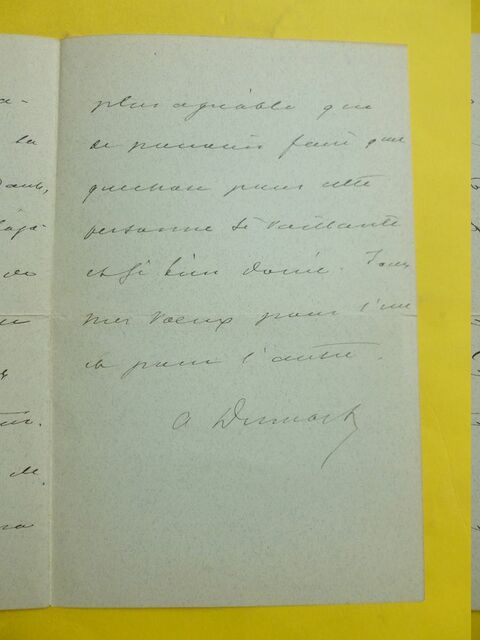 plus agréable que
de pouvoir faire que
quechose pour cette
personne si vaillante
et si bien douée. Tous
mes vœux pour l'une
et pour l'autre.
A Dumont
la
de